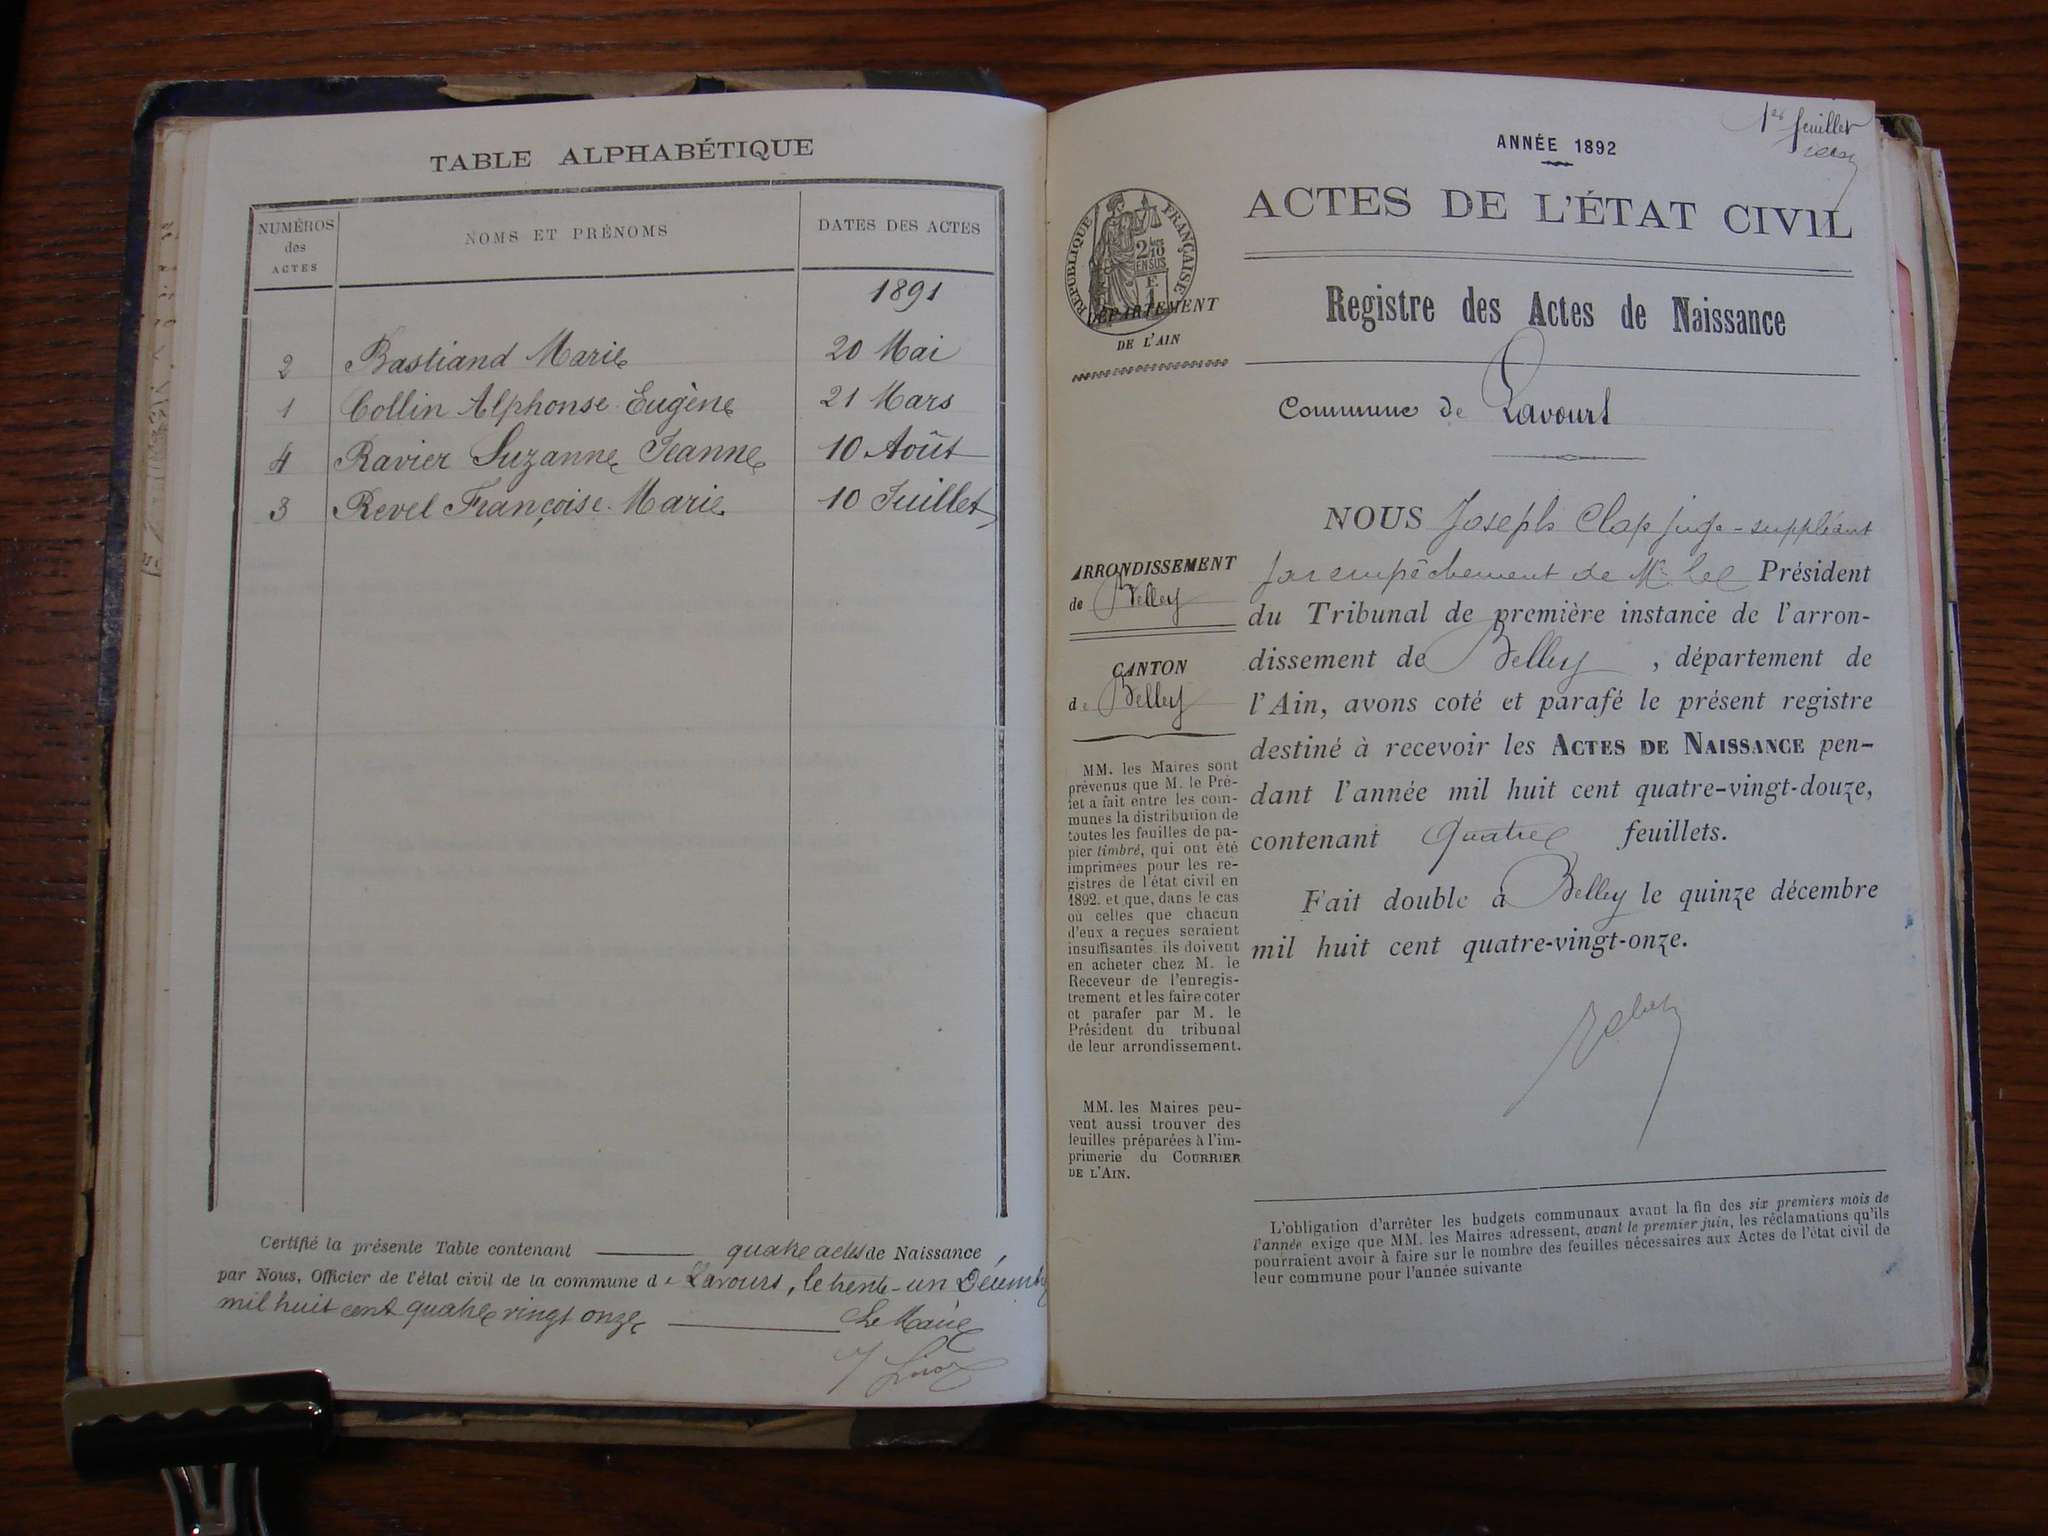 TABLE ALPHABÉTIQUE
NUMÉROS des ACTES
NOMS ET PRÉNOMS
DATES DES ACTES
1891
2 Bastiand Marie 20 Mai
1 Collin Alphonse Eugène 21 Mars
4 Ravier Suzanne Jeanne 10 Août
3 Revel Françoise Marie 10 Juillet
Certifié la présente Table contenant quatre actes de Naissance
par Nous, Officier de l'état civil de la commune de Lavours, le trente-un Décembre
mil huit cent quatre vingt onze
Le Maire
1er feuillet
ANNÉE 1892
ACTES DE L'ÉTAT CIVIL
RÉPUBLIQUE FRANÇAISE
2/10 EN SUS
DÉPARTEMENT
DE L'AIN
Registre des Actes de Naissance
Commune de Lavours
ARRONDISSEMENT
de Belley
CANTON
de Belley
MM. les Maires sont
prévenus que M. le Pré-
fet a fait entre les com-
munes la distribution de
toutes les feuilles de pa-
pier timbré, qui ont été
imprimées pour les re-
gistres de l'état civil en
1892. et que, dans le cas
où celles que chacun
d'eux a reçues seraient
insuffisantes, ils doivent
en acheter chez M. le
Receveur de l'enregis-
trement et les faire coter
et parafer par M. le
Président du tribunal
de leur arrondissement.
MM. les Maires peu-
vent aussi trouver des
feuilles préparées à l'im-
primerie du COURRIER
DE L'AIN.
NOUS Joseph Clap juge-suppléant
par empêchement de Mr le Président
du Tribunal de première instance de l'arron-
dissement de Belley, département de
l'Ain, avons coté et parafé le présent registre
destiné à recevoir les ACTES DE NAISSANCE pen-
dant l'année mil huit cent quatre-vingt-douze,
contenant Quatre feuillets.
Fait double à Belley le quinze décembre
mil huit cent quatre-vingt-onze.
L'obligation d'arrêter les budgets communaux avant la fin des six premiers mois de
l'année exige que MM. les Maires adressent, avant le premier juin, les réclamations qu'ils
pourraient avoir à faire sur le nombre des feuilles nécessaires aux Actes de l'état civil de
leur commune pour l'année suivante